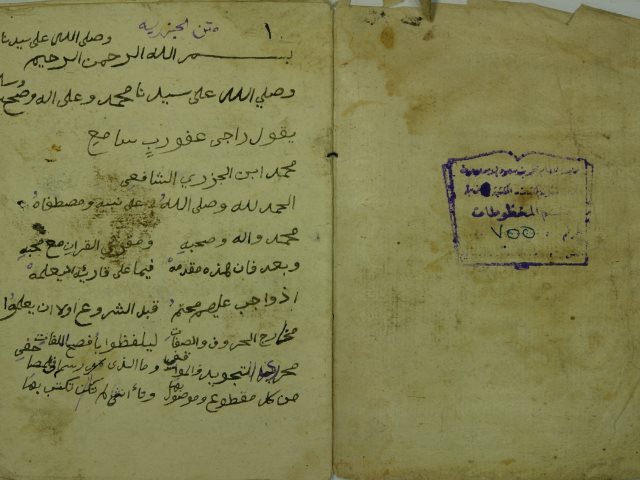 متن الجزريه
١
وصلى الله على سيدنا
بسم الله الرحمن الرحيم
وصلي الله على سيدنا محمد وعلى اله وصحبه
يقول راجى عفو رب سامع
محمد ابن الجزري الشافعى
الحمد لله وصلى الله على نبيه ومصطفاه
محمد واله وصحبه ومقرئ القران مع محبه
وبعد فان هذه مقدمه فيما على قاريه ان يعلمه
اذ واجب عليهم محتم قبل الشروع اولا ان يعلموا
مخارج الحروف والصفات ليلفظوا بافصح اللغات
محرري التجويد والمواقف وما الذى رسم فى المصاحف
من كل مقطوع وموصول بها وتاء انثى لم تكن تكتب بها
المخطوطات
٧٥٥